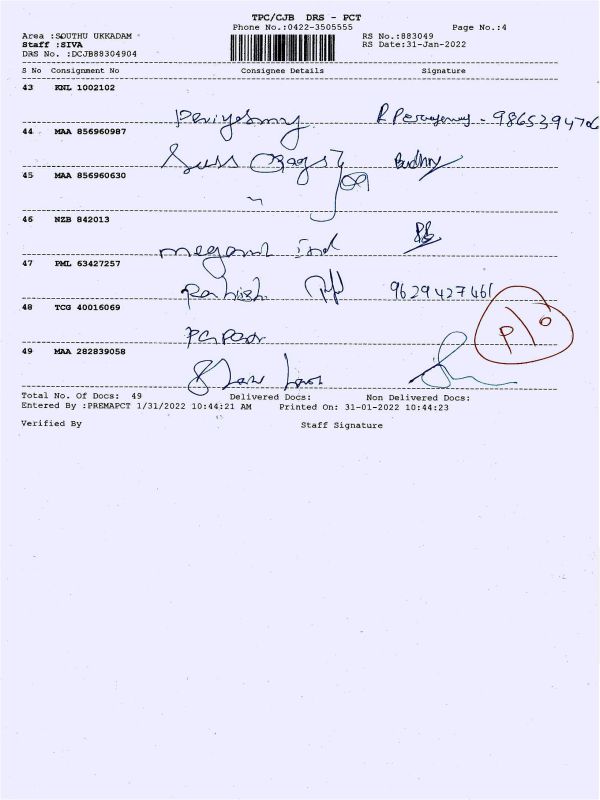 TPC/CJB DRS - PCT
Phone No.:0422-3505555 Page No.:4
Area :SOUTHU UKKADAM RS No.:883049
Staff :SIVA RS Date:31-Jan-2022
DRS No. :DCJB88304904
S No Consignment No Consignee Details Signature
43 KNL 1002102
Periyasamy 9865394706
44 MAA 856960987
45 MAA 856960630
46 NZB 842013
megamt ind
47 PML 63427257
9629427461
48 TCG 40016069
P/o
49 MAA 282839058
Total No. Of Docs: 49 Delivered Docs: Non Delivered Docs:
Entered By :PREMAPCT 1/31/2022 10:44:21 AM Printed On: 31-01-2022 10:44:23
Verified By Staff Signature